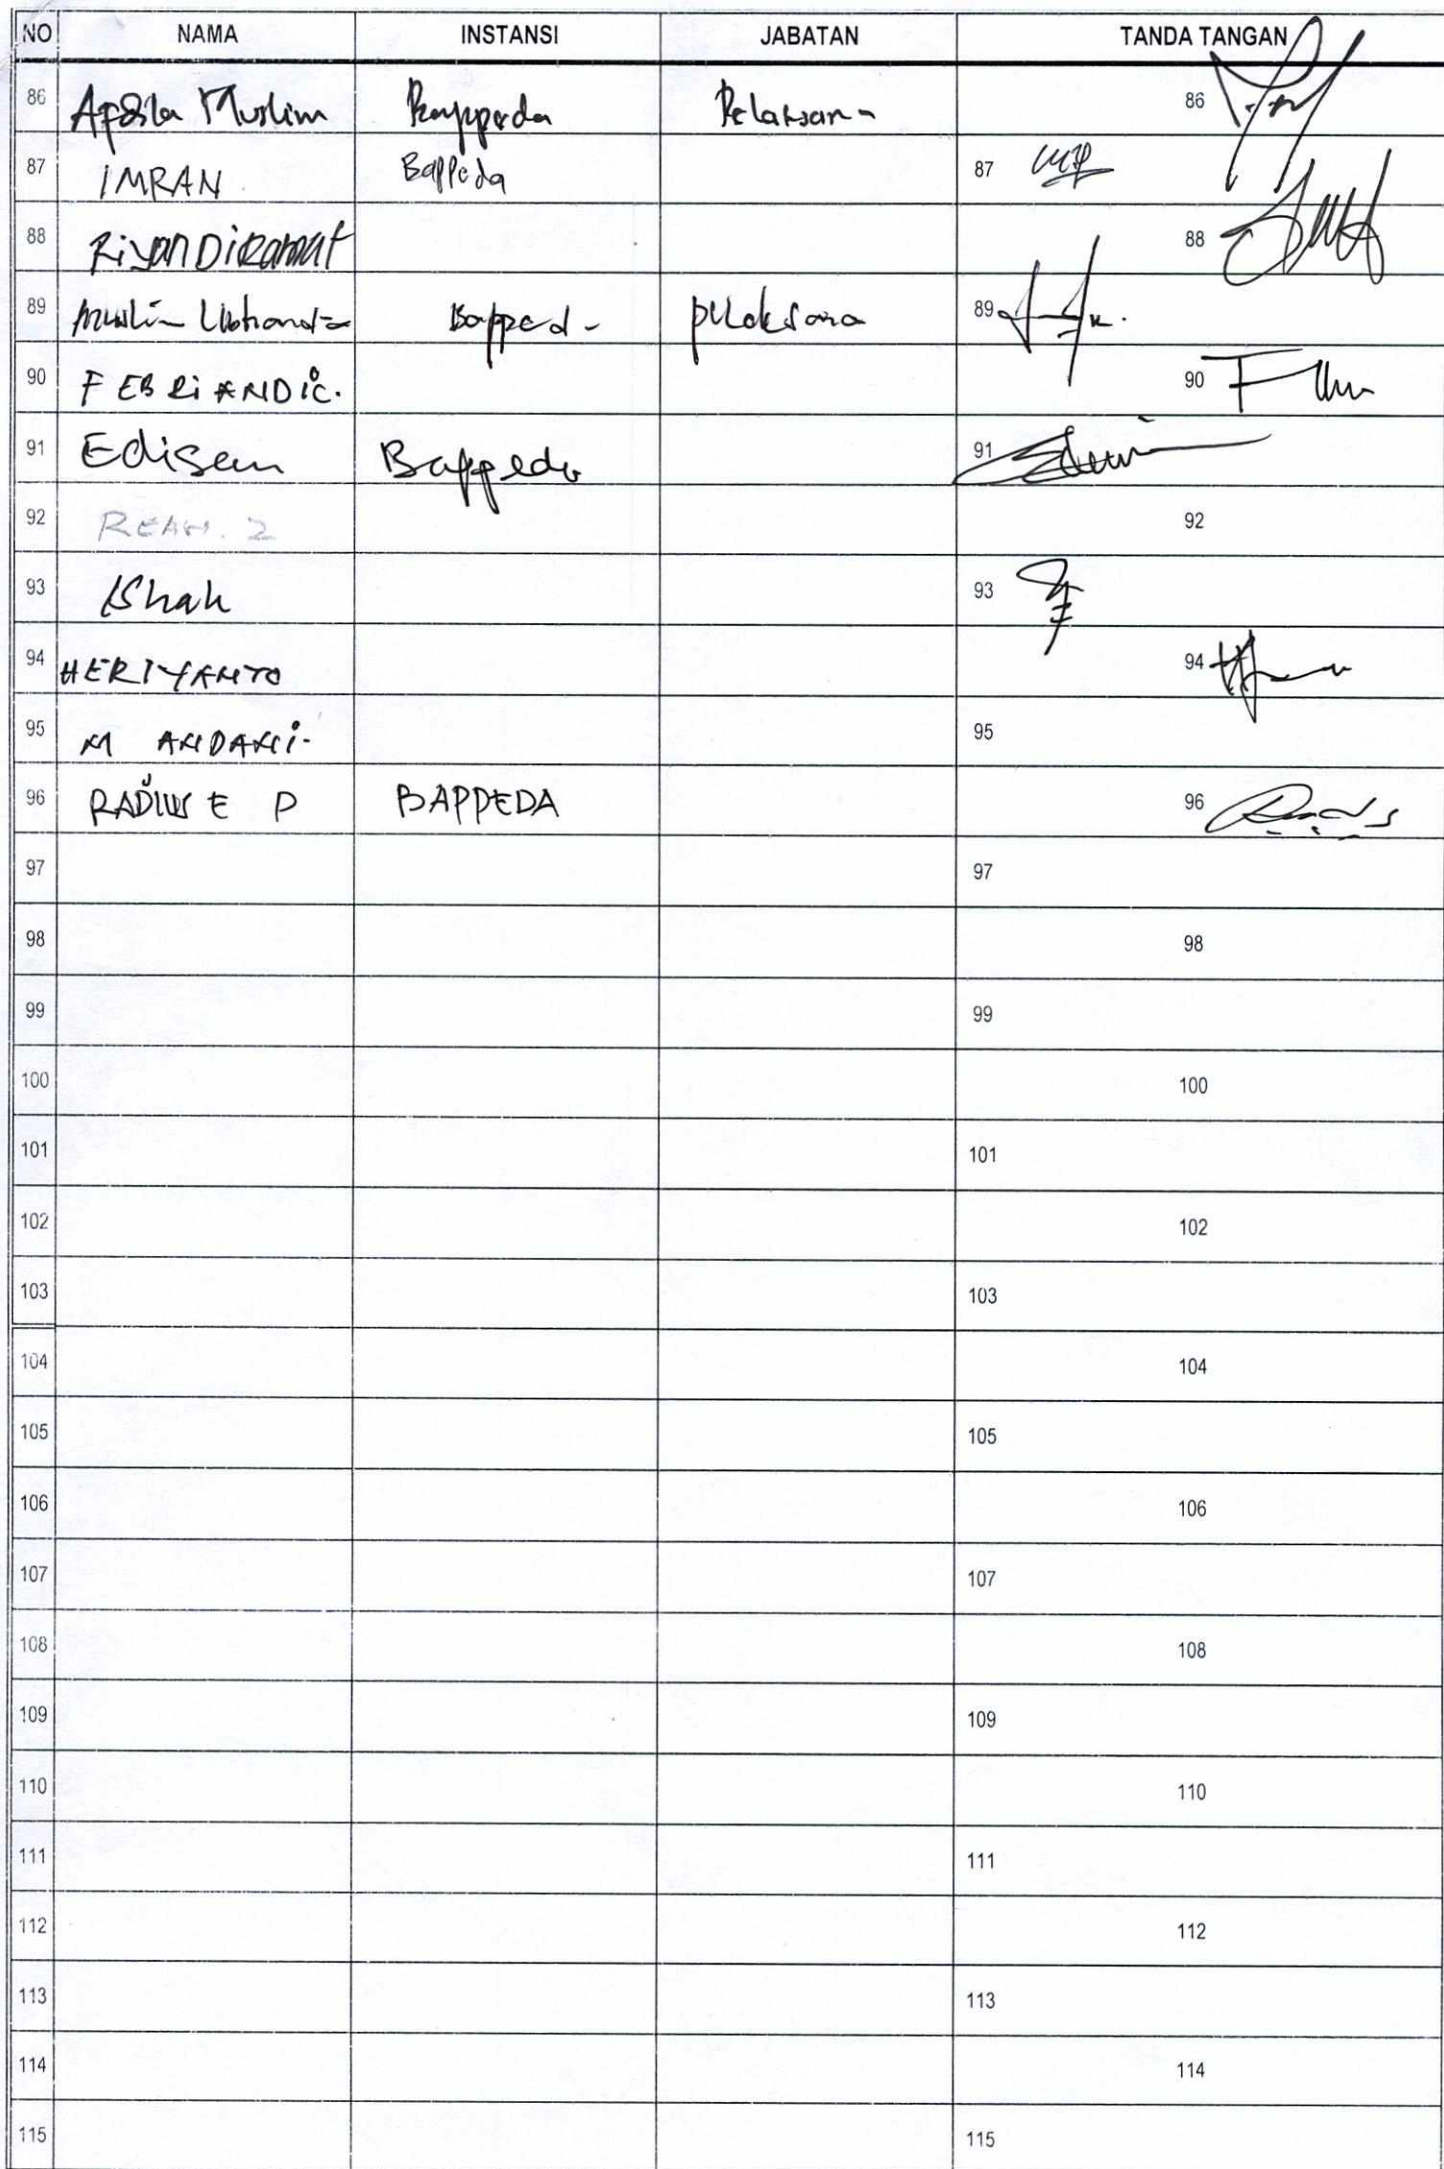 NO NAMA INSTANSI JABATAN TANDA TANGAN
86 Muslim Bappeda Pelaksana 86
87 IMRAN Bappeda 87
88 88
89 Muslim Bapped- pelaksana 89
90 FEBRIANDI C. 90
91 Edisen Bappeda 91
92 92
93 Ishak 93
94 HERIYANTO 94
95 M ANDANI. 95
96 RADIUS E P BAPPEDA 96
97 97
98 98
99 99
100 100
101 101
102 102
103 103
104 104
105 105
106 106
107 107
108 108
109 109
110 110
111 111
112 112
113 113
114 114
115 115